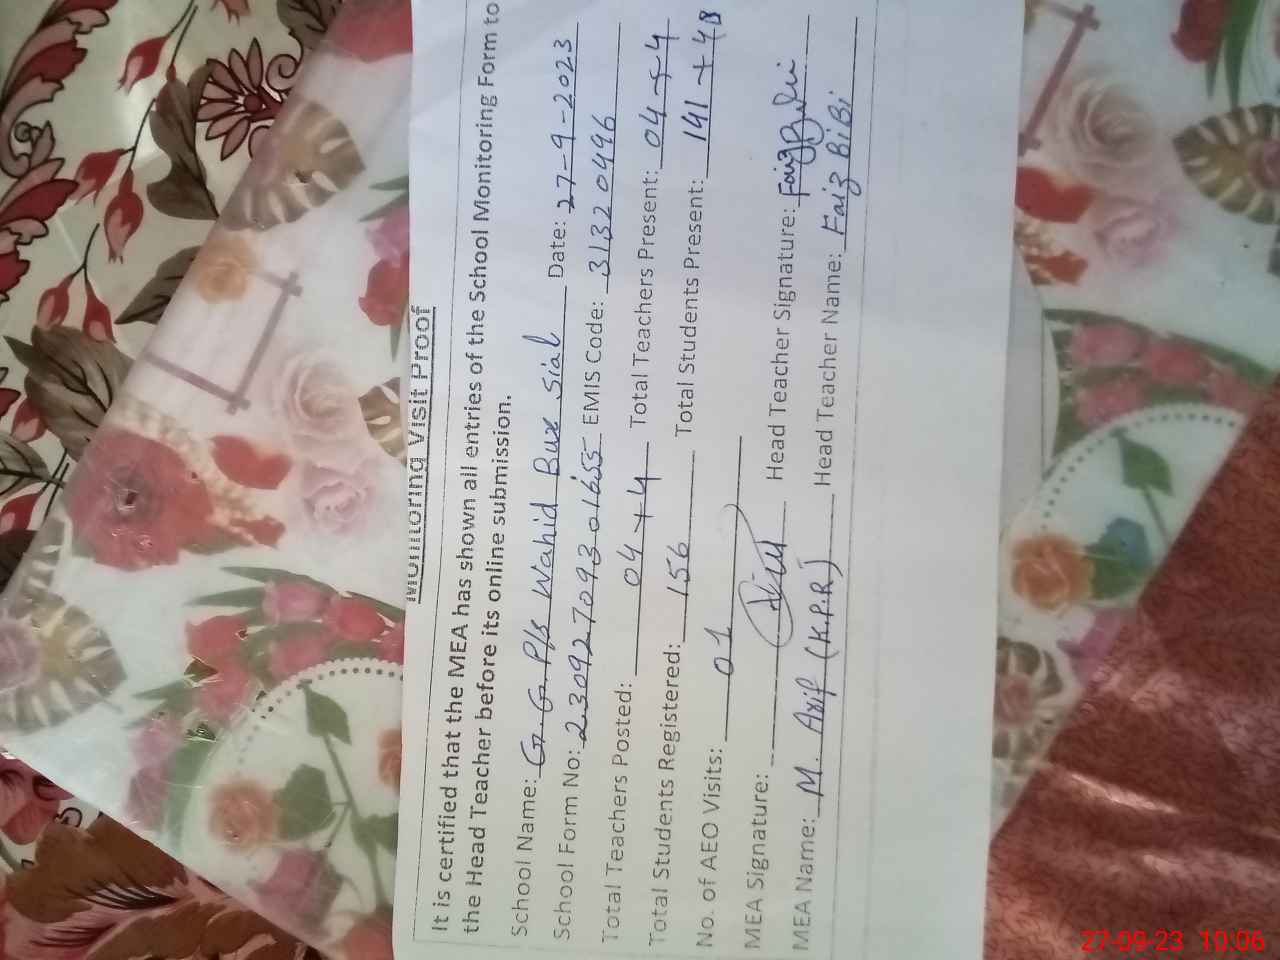 Monitoring Visit Proof
It is certified that the MEA has shown all entries of the School Monitoring Form to
the Head Teacher before its online submission.
School Name: G.G.P/S Wahid Bux Sial Date: 27-9-2023
School Form No: 23092709301655 EMIS Code: 31320496
Total Teachers Posted: 04+4 Total Teachers Present: 04+4
Total Students Registered: 156 Total Students Present: 141+48
No. of AEO Visits: 01
MEA Signature: Head Teacher Signature:
MEA Name: M. Arif (K.P.R) Head Teacher Name: Faiz BiBi
27-09-23 10:06